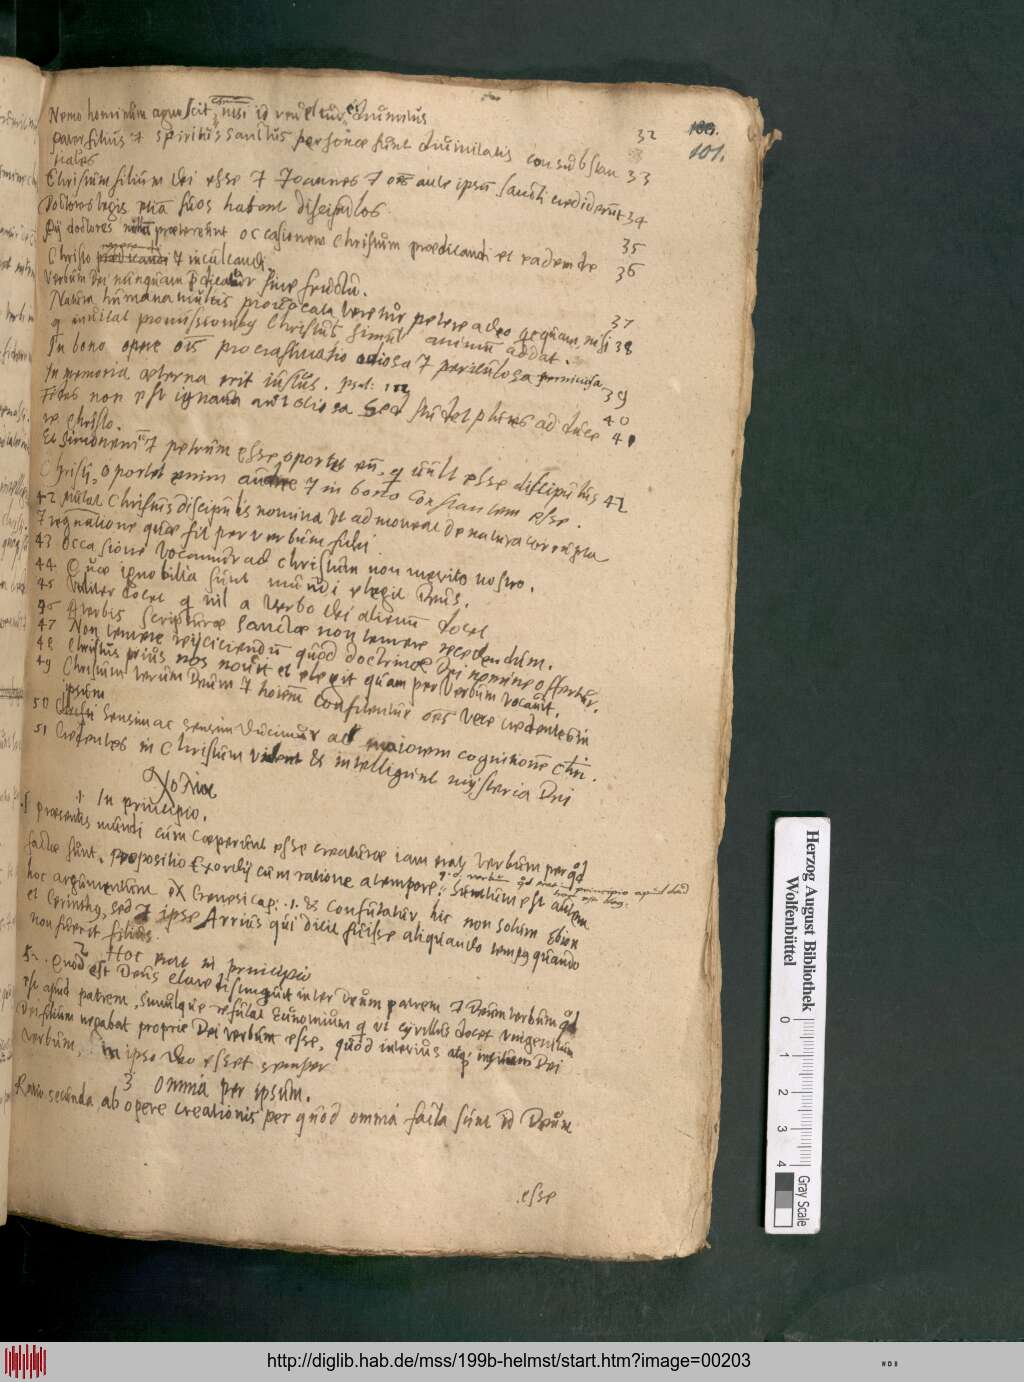 100.
101.
Nemo hominum agnoscit Christum nisi id reueletur ei diuinitus 32
Pater filius et spiritus sanctus personae sunt diuinitatis consubstan 33
tiales
Christum filium dei esse et Joannes et oēs ante ipsum sancti crediderunt 34
Doctores legis etiā suos habent discipulos. 35
Pij doctores nullam praetereunt occasionem Christum praedicandi et eadem de 36
Christo praedicandi et inculcandi
Verbum Dei nunquam praedicatur sine fructu. 37
Natura humana multis prouocata veretur petere adeo quequam, nisi 38
inuitat promissionibus Christus simul animum addat.
In bono opere oīs procrastinatio odiosa et periculosa perniciosa 39
In memoria aeterna erit iustus. psal: 40
Fides non est ignaua aut otiosa sed studet plures ad duce 41
re Christo.
Et Simonem et petrum esse oportet eū, qui uult esse discipulus 42
Christi, oportet enim audire et in bono constantem esse.
42 mutat Christus discipulis nomina ut admoneat de natura corrupta
et regnatione quae fit per verbum fidei
43 Occasione vocamur ad Christum non merito nostro.
44 Quae ignobilia sunt mundi elegit Deus.
45 docet q nil a verbo dei alienum docet
46 A verbis scripturae sanctae non temere recedendum.
47 Non temere reijciendum quod doctrinae Dei nomine offertur.
48 Christus prius nos nouit et elegit quam per verbum vocauit.
49 Christum verum Deum et hoīem confitentur oēs vere credentes in
ipsum
50 sensim ac sensim ducimur ad maiorem cognitionē Chri.
51 Credentes in Christum vident et intelligunt mysteria Dei
1 In principio.
praesentis mundi cum coeperunt esse creaturae iam erat verbum per qd
factae sunt. propositio Exordij cum ratione a tempore.
hoc argumentum ex Genesi cap: .1. et confutatur hic non solum Ebion
et Cerinthus, sed et ipse Arrius qui dicit fuisse aliquando tempus quando
non fuerit filius.
2 Hoc erat in principio
Quod est Deus clare distinguit inter Deum patrem et Deum verbum qd
est apud patrem, simulque refutat Eunomium q ut Cyrillus docet vnigenitum
Dei filium negabat proprie Dei verbum esse, quod interius atque insitum Dei
verbum, in ipso deo esset semper
3 omnia per ipsum.
Ratio secunda ab opere creationis per quod omnia facta sunt id Deum
esse
Herzog August Bibliothek
Wolfenbüttel
0 1 2 3 4
Gray Scale
http://diglib.hab.de/mss/199b-helmst/start.htm?image=00203